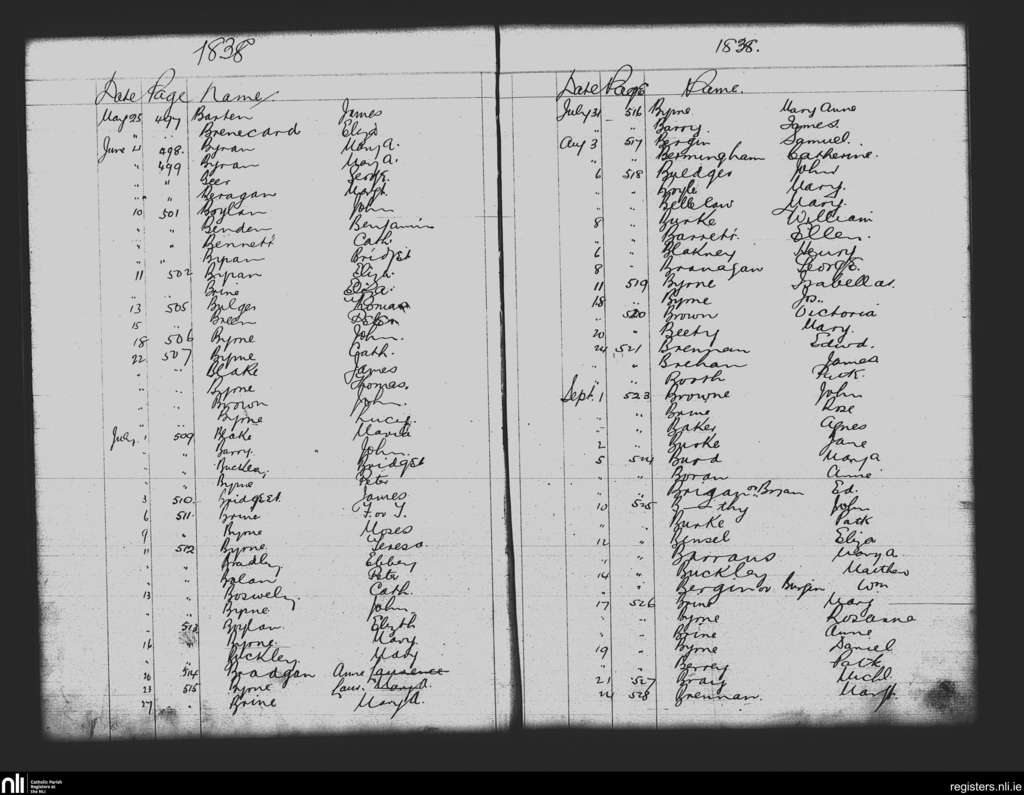 1838
Date Page Name
May 25 497 Barten James
" " Brenecard Eliza
June 4 498. Byran Mary A.
" 499 Byran Mary A.
" " Beer George
" " Beragan Margt.
10 501 Boylan John
" " Bender Benjamin
" " Bennett Cath.
" " Byran Bridget
11 502 Byran Eliza.
" " Brine Eliza.
13 505 Bulger Thomas
15 " Breen Peter
18 506 Byrne John.
22 507 Byrne Cath.
" " Blake James
" " Byrne Thomas.
" " Brown John.
" " Byrne Lucy.
July 1 509 Blake Maria
" " Barry. John.
" " Buckley Bridget
" " Byrne Peter
3 510. Bridget James
6 511. Brine F. or T.
9 " Byrne Moses
11 512 Byrne Teresa.
" " Bradley Ebbey
" " Bolan Peter
13 " Boswely. Cath.
" " Byrne John,
" 513 Boylan Elizth
16 " Byrne Mary
" " Buckley Mary
20 514 Bradgan Anne Laurence
23 515 Byrne Laur. Mary A.
27 " Brine Mary A.
1838.
Date Page Name.
July 31 516 Byrne Mary Anne
" " Barry. James.
Aug 3 517 Bergin Samuel.
" " Bermingham Catherine.
6 518 Buldger John
" " Boyle Mary.
" " Bellelaw Mary.
8 " Burke William
" " Barrett. Ellen.
6 " Blakney Henry
8 " Branagan George.
11 519 Byrne Isabella.
18 " Byrne Jos..
" 520 Brown Victoria
20 " Beety Mary.
24 521 Brennan Edwd.
" " Brehan James
" " Booth Patk.
Sept. 1 523 Browne John
" " Brine Rose
" " Baker Agnes
2 " Burke Jane
5 524 Burd Mary A
" " Boran Anne
" " Brigan or Bryan Ed.
10 525 B——thy John
" " Burke Patk
12 " Binsel Eliza
" " Barrans Mary A
14 " Buckley Matthew
" " Bergin or Burgin Wm
17 526 Brine Mary
" " byrne Rosanna
" " Brine Anne
19 " Byrne Daniel
" " Berrey Patk
21 527 Bray Michl.
24 528 Brennan. Margt.
nli Catholic Parish
Registers at
the NLI
registers.nli.ie